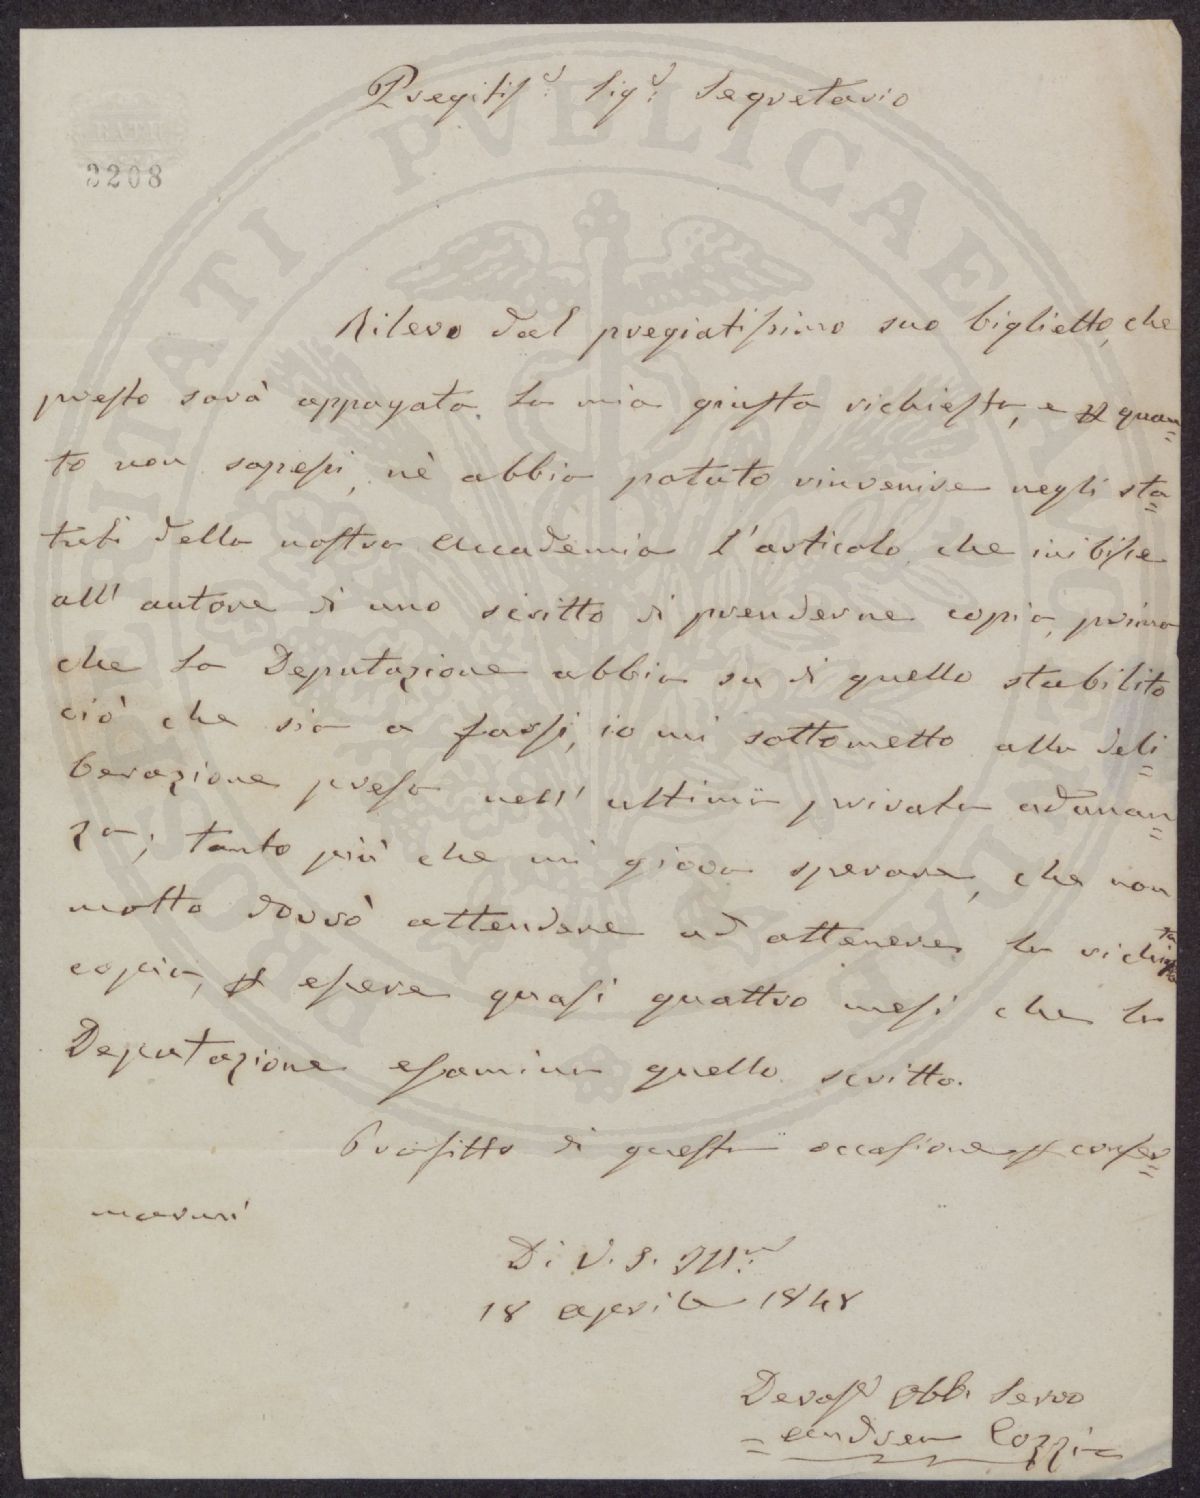 Pregiatis.º Sig.r Segretario
2208
Rilevo dal pregiatissimo suo biglietto, che
presto sarà appagata la mia giusta richiesta, e quan=
to non sapessi, nè abbia potuto rinvenire negli sta=
tuti della nostra Accademia l'articolo che inibisce
all' autore di uno scritto di prenderne copia, prima
che la Deputazione abbia su di quello stabilito
ciò che sia a farsi, io mi sottometto alla deli=
berazione presa nell' ultima privata adunan=
za; tanto più che mi giova sperare, che non
molto dovrò attendere ad ottenere la richiesta
copia, essere quasi quattro mesi che la
Deputazione esamina quello scritto.
Profitto di questa occasione confer=
marmi
Di V. S. Ill.ma
18 aprile 1848
Devoss.º Obb. Servo
= Andrea Cozzi =
PVBLICAE